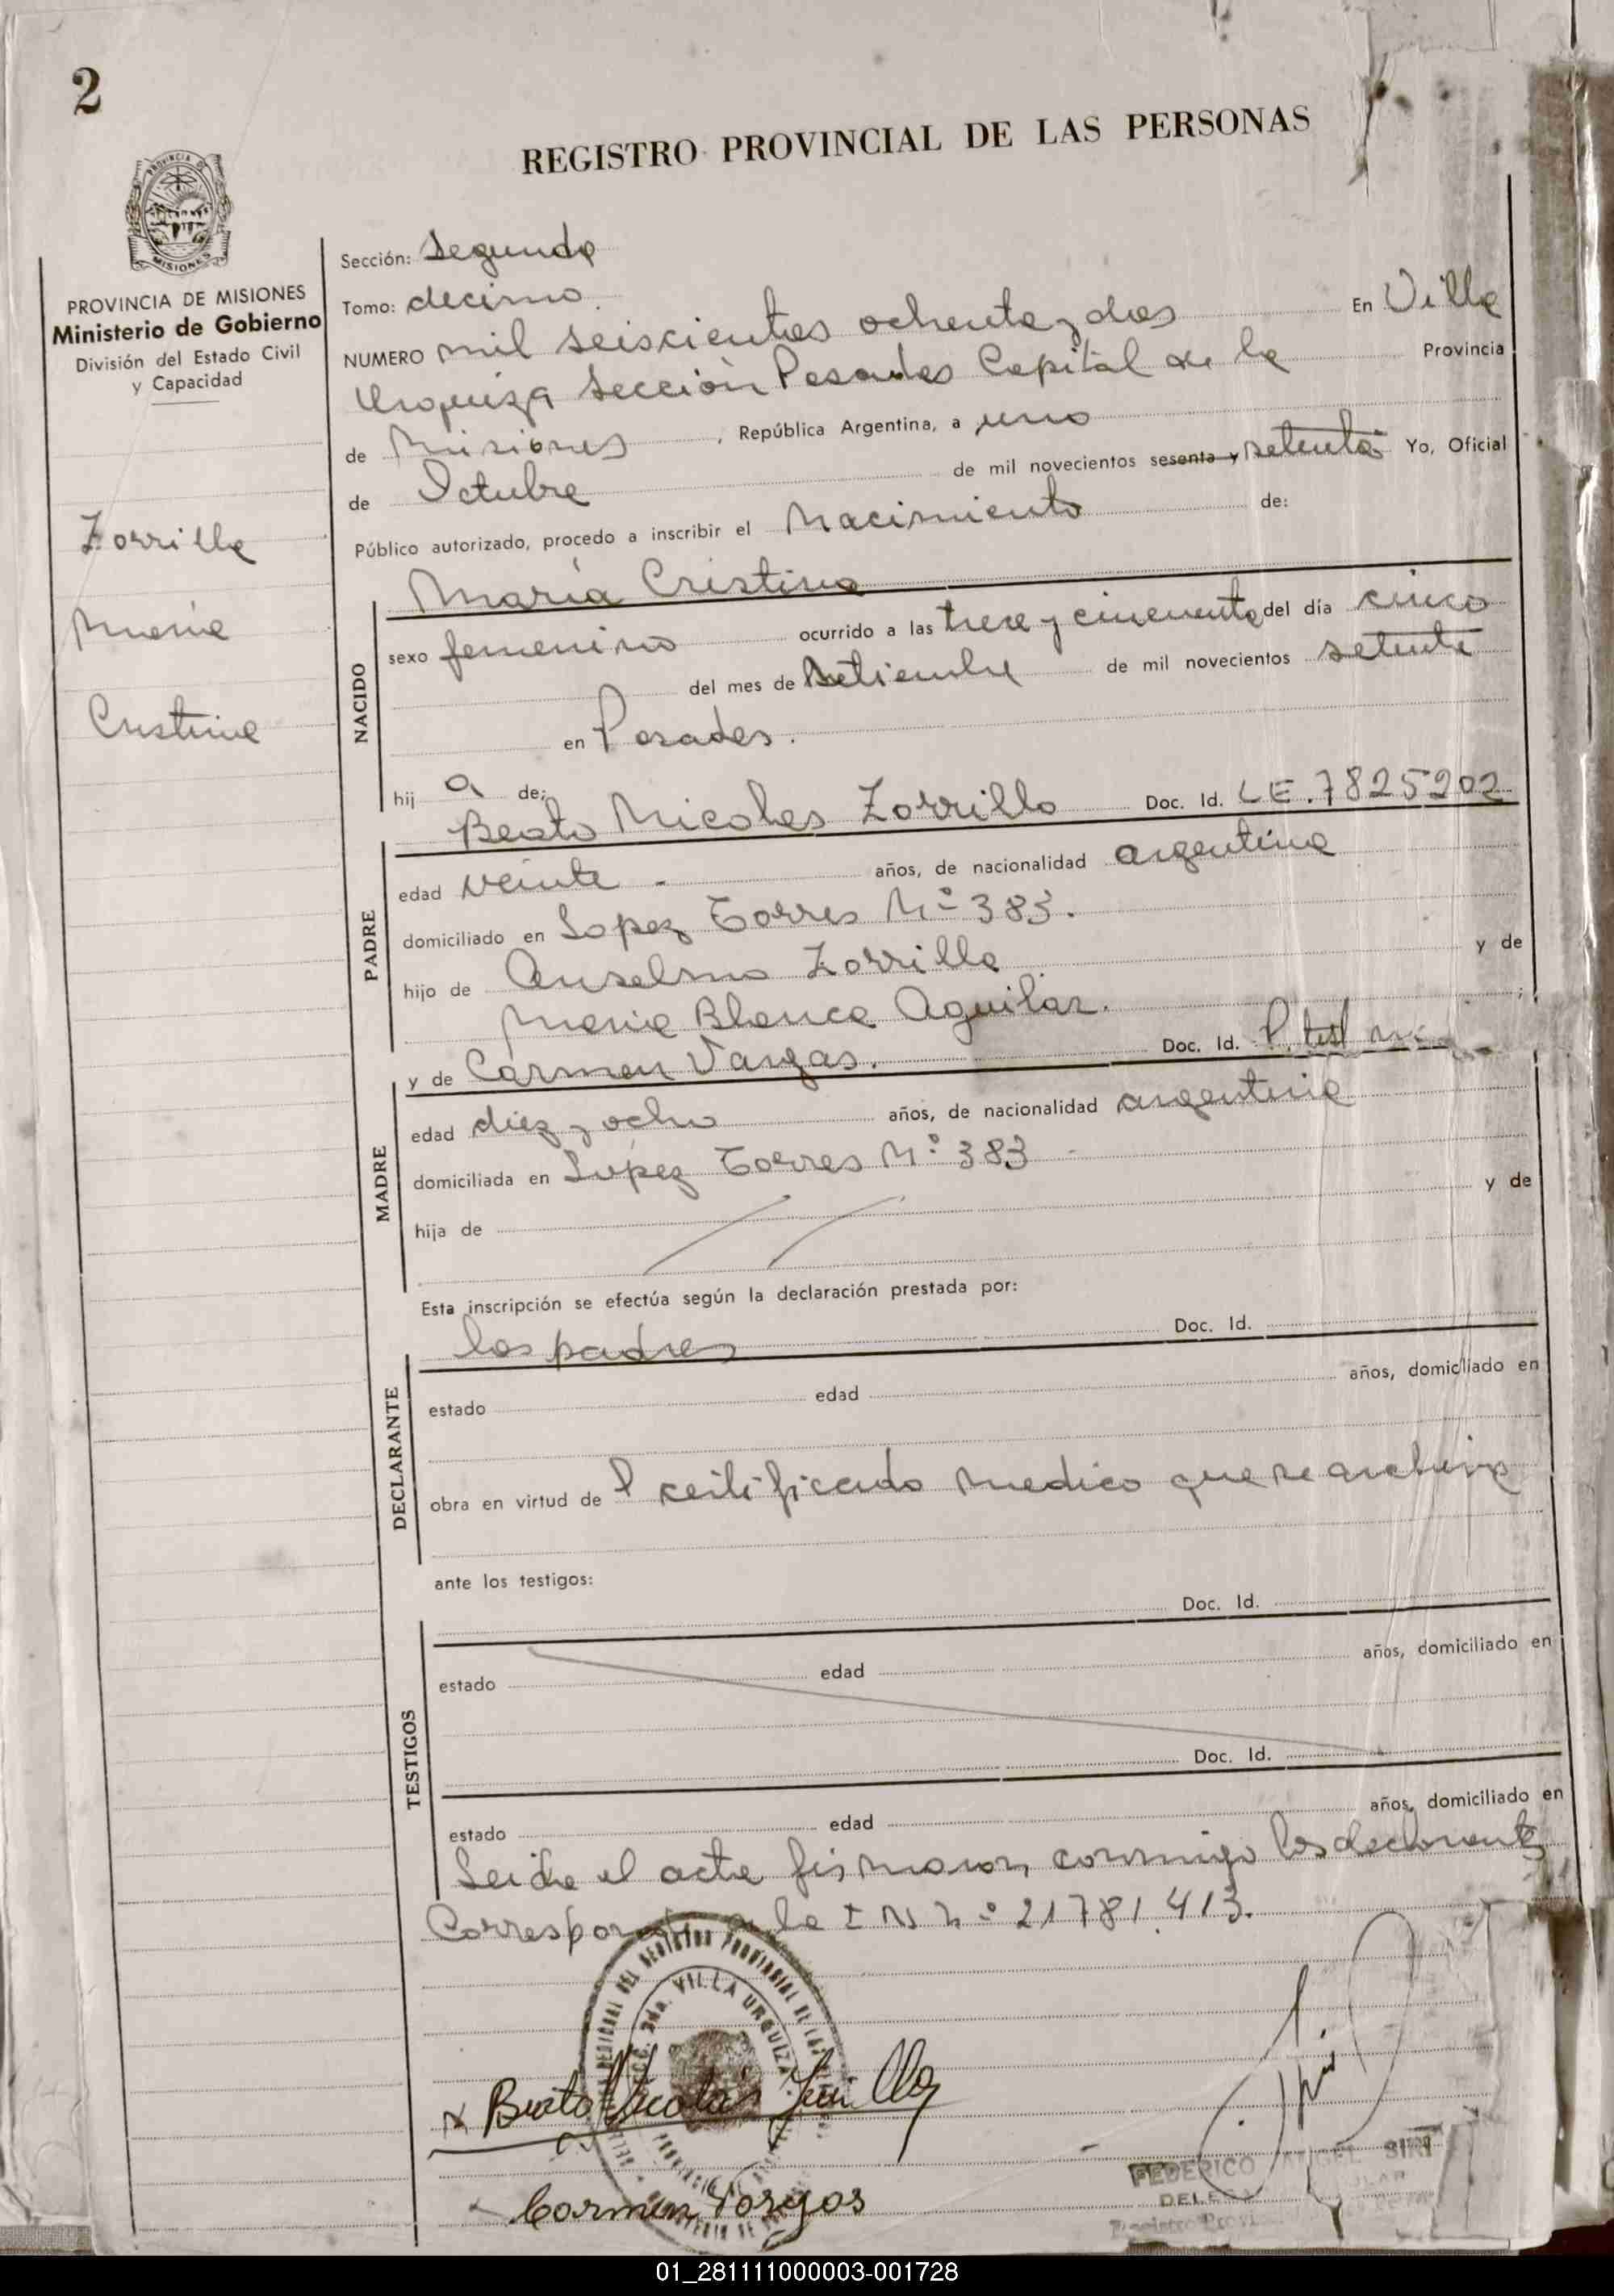 2
REGISTRO PROVINCIAL DE LAS PERSONAS
PROVINCIA DE
MISIONES
PROVINCIA DE MISIONES
Ministerio de Gobierno
División del Estado Civil
y Capacidad
Zorrilla
María
Cristina
Sección: Segunda
Tomo: decimo
NUMERO mil seiscientos ochenta y dos En Villa
Urquiza Sección Posadas Capital de la Provincia
de Misiones, República Argentina, a uno
de Octubre de mil novecientos sesenta y setenta Yo, Oficial
Público autorizado, procedo a inscribir el Nacimiento de:
María Cristina
NACIDO
sexo femenino ocurrido a las trece y cincuenta del día cinco
del mes de Setiembre de mil novecientos setenta
en Posadas.
hij a de:
Beato Nicolas Zorrilla Doc. Id. LE.7825202
PADRE
edad veinte - años, de nacionalidad argentina
domiciliado en Lopez Torres Nº 383.
hijo de Anselmo Zorrilla y de
Maria Blanca Aguilar. ;
y de Carmen Vargas. Doc. Id.
MADRE
edad diez y ocho años, de nacionalidad argentina
domiciliada en López Torres Nº 383 -
hija de y de
Esta inscripción se efectúa según la declaración prestada por:
los padres Doc. Id.
DECLARANTE
estado edad años, domiciliado en
obra en virtud de l certificado medico que se archiva
ante los testigos:
Doc. Id.
TESTIGOS
estado edad años, domiciliado en
Doc. Id.
estado edad años, domiciliado en
Leida el acta firmaron conmigo los declarantes
a la I N Nº 21781.413.
SECC. 2da. VILLA URQUIZA
Beato Nicolás
Carmen Vargas
FEDERICO ANGEL
01_281111000003-001728